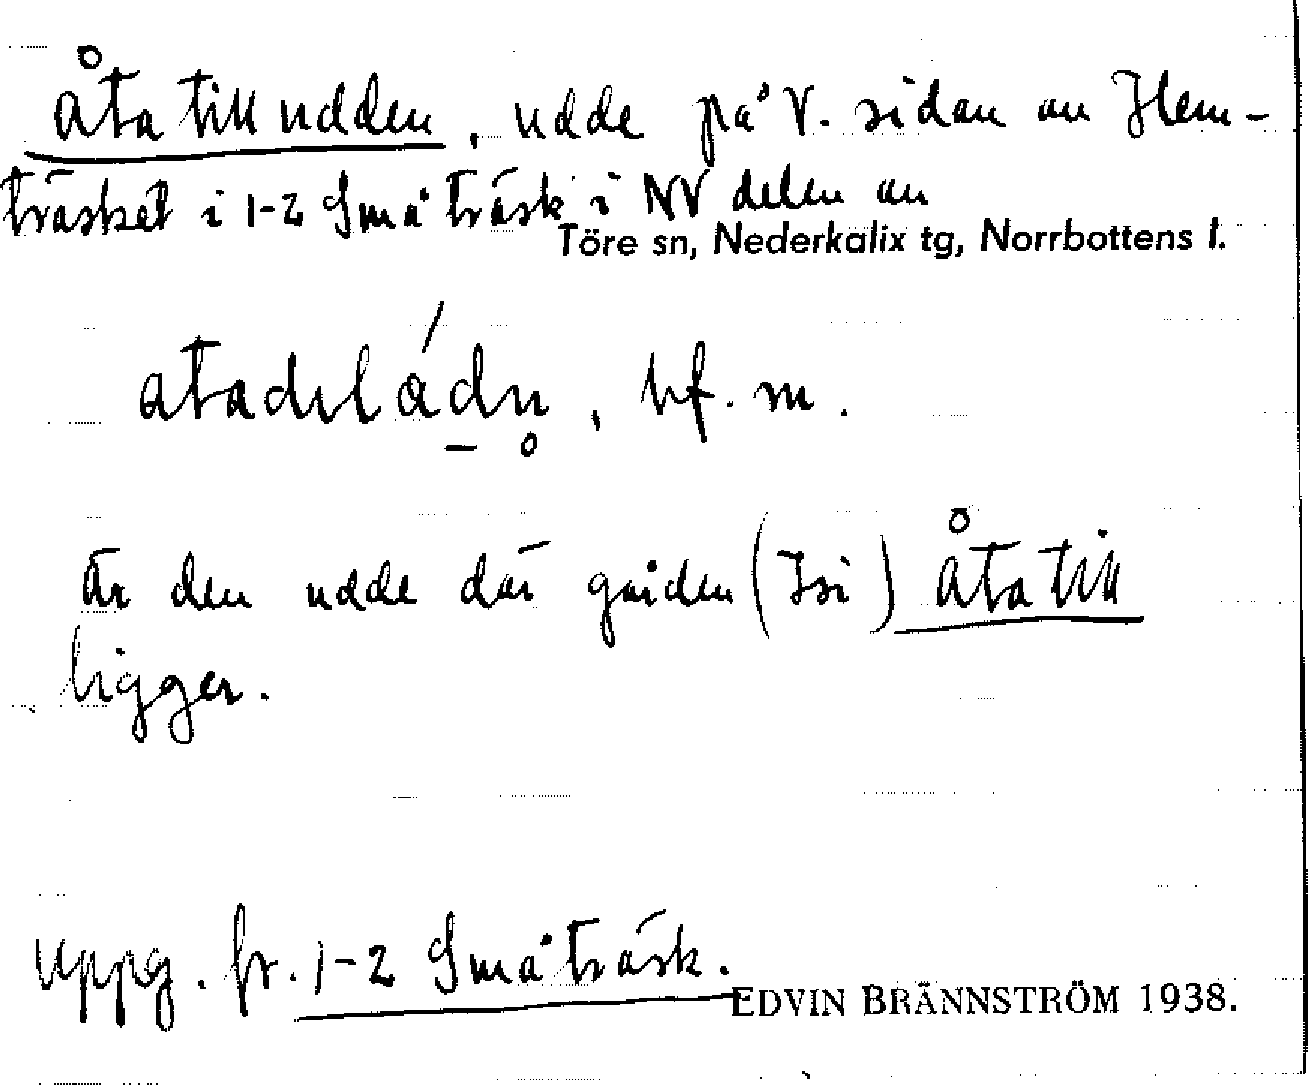 Åta till udden, udde på V. sidan av Hem-
träsket i 1-2 Småträsk i NV delen av
Töre sn, Nederkalix tg, Norrbottens l.
, bf. m.
är den udde där gården (Isi) Åta till
ligger.
Uppg. fr. 1-2 Småträsk.
EDVIN BRÄNNSTRÖM 1938.